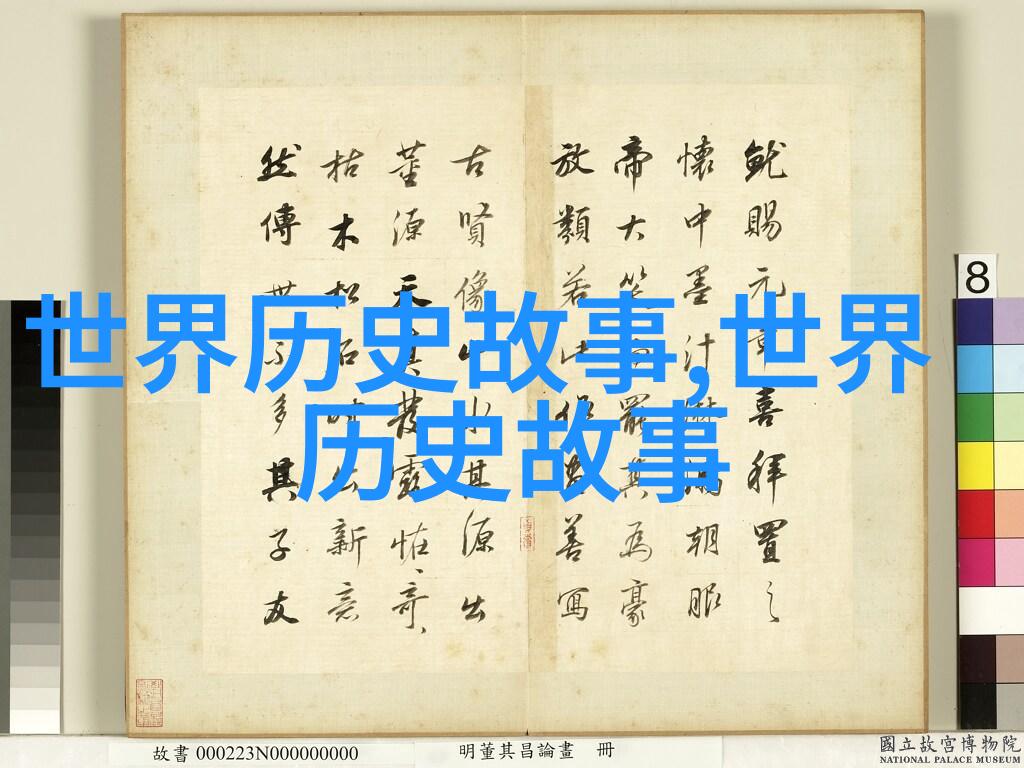 世界历史故事,世界
历史故事
就賜元章喜拜置之
懷中墨汁淋漓朝服
帝大笑而罷其為豪
放類若此善寫
古賢像山水其源出
董源天真發露怪、奇、
枯木松石時出新意
然傳世不多其子友
8
故書 000223N000000000
明董其昌論畫 冊
國立故宮博物院
NATIONAL PALACE MUSEUM